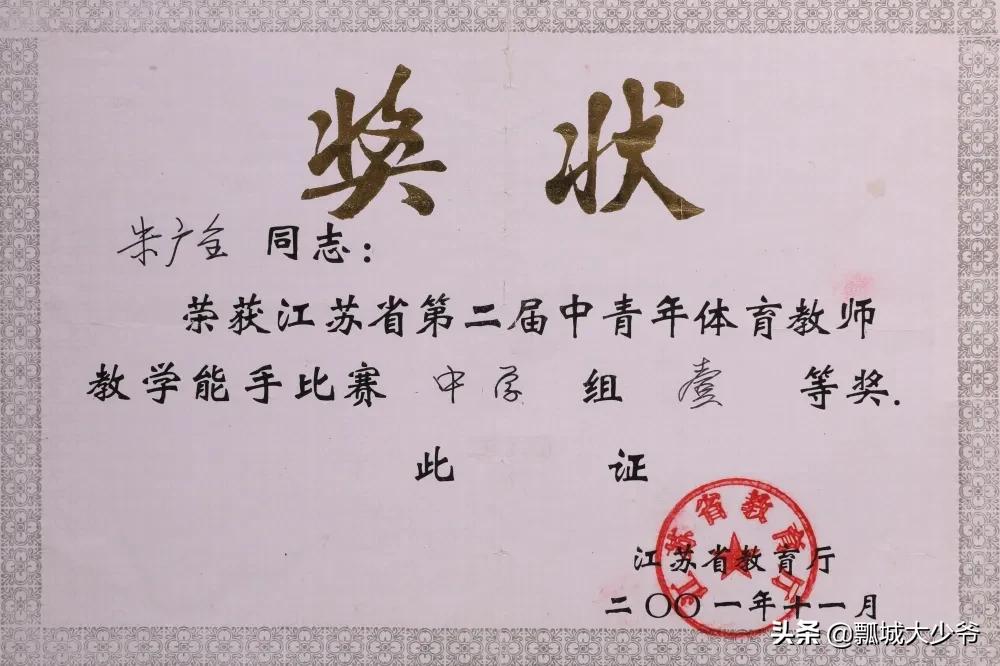 奖状
朱广全 同志：
荣获江苏省第二届中青年体育教师
教学能手比赛 中学 组 壹 等奖.
此 证
江苏省教育厅
江苏省教育厅
二〇〇一年十一月
头条 @瓢城大少爷